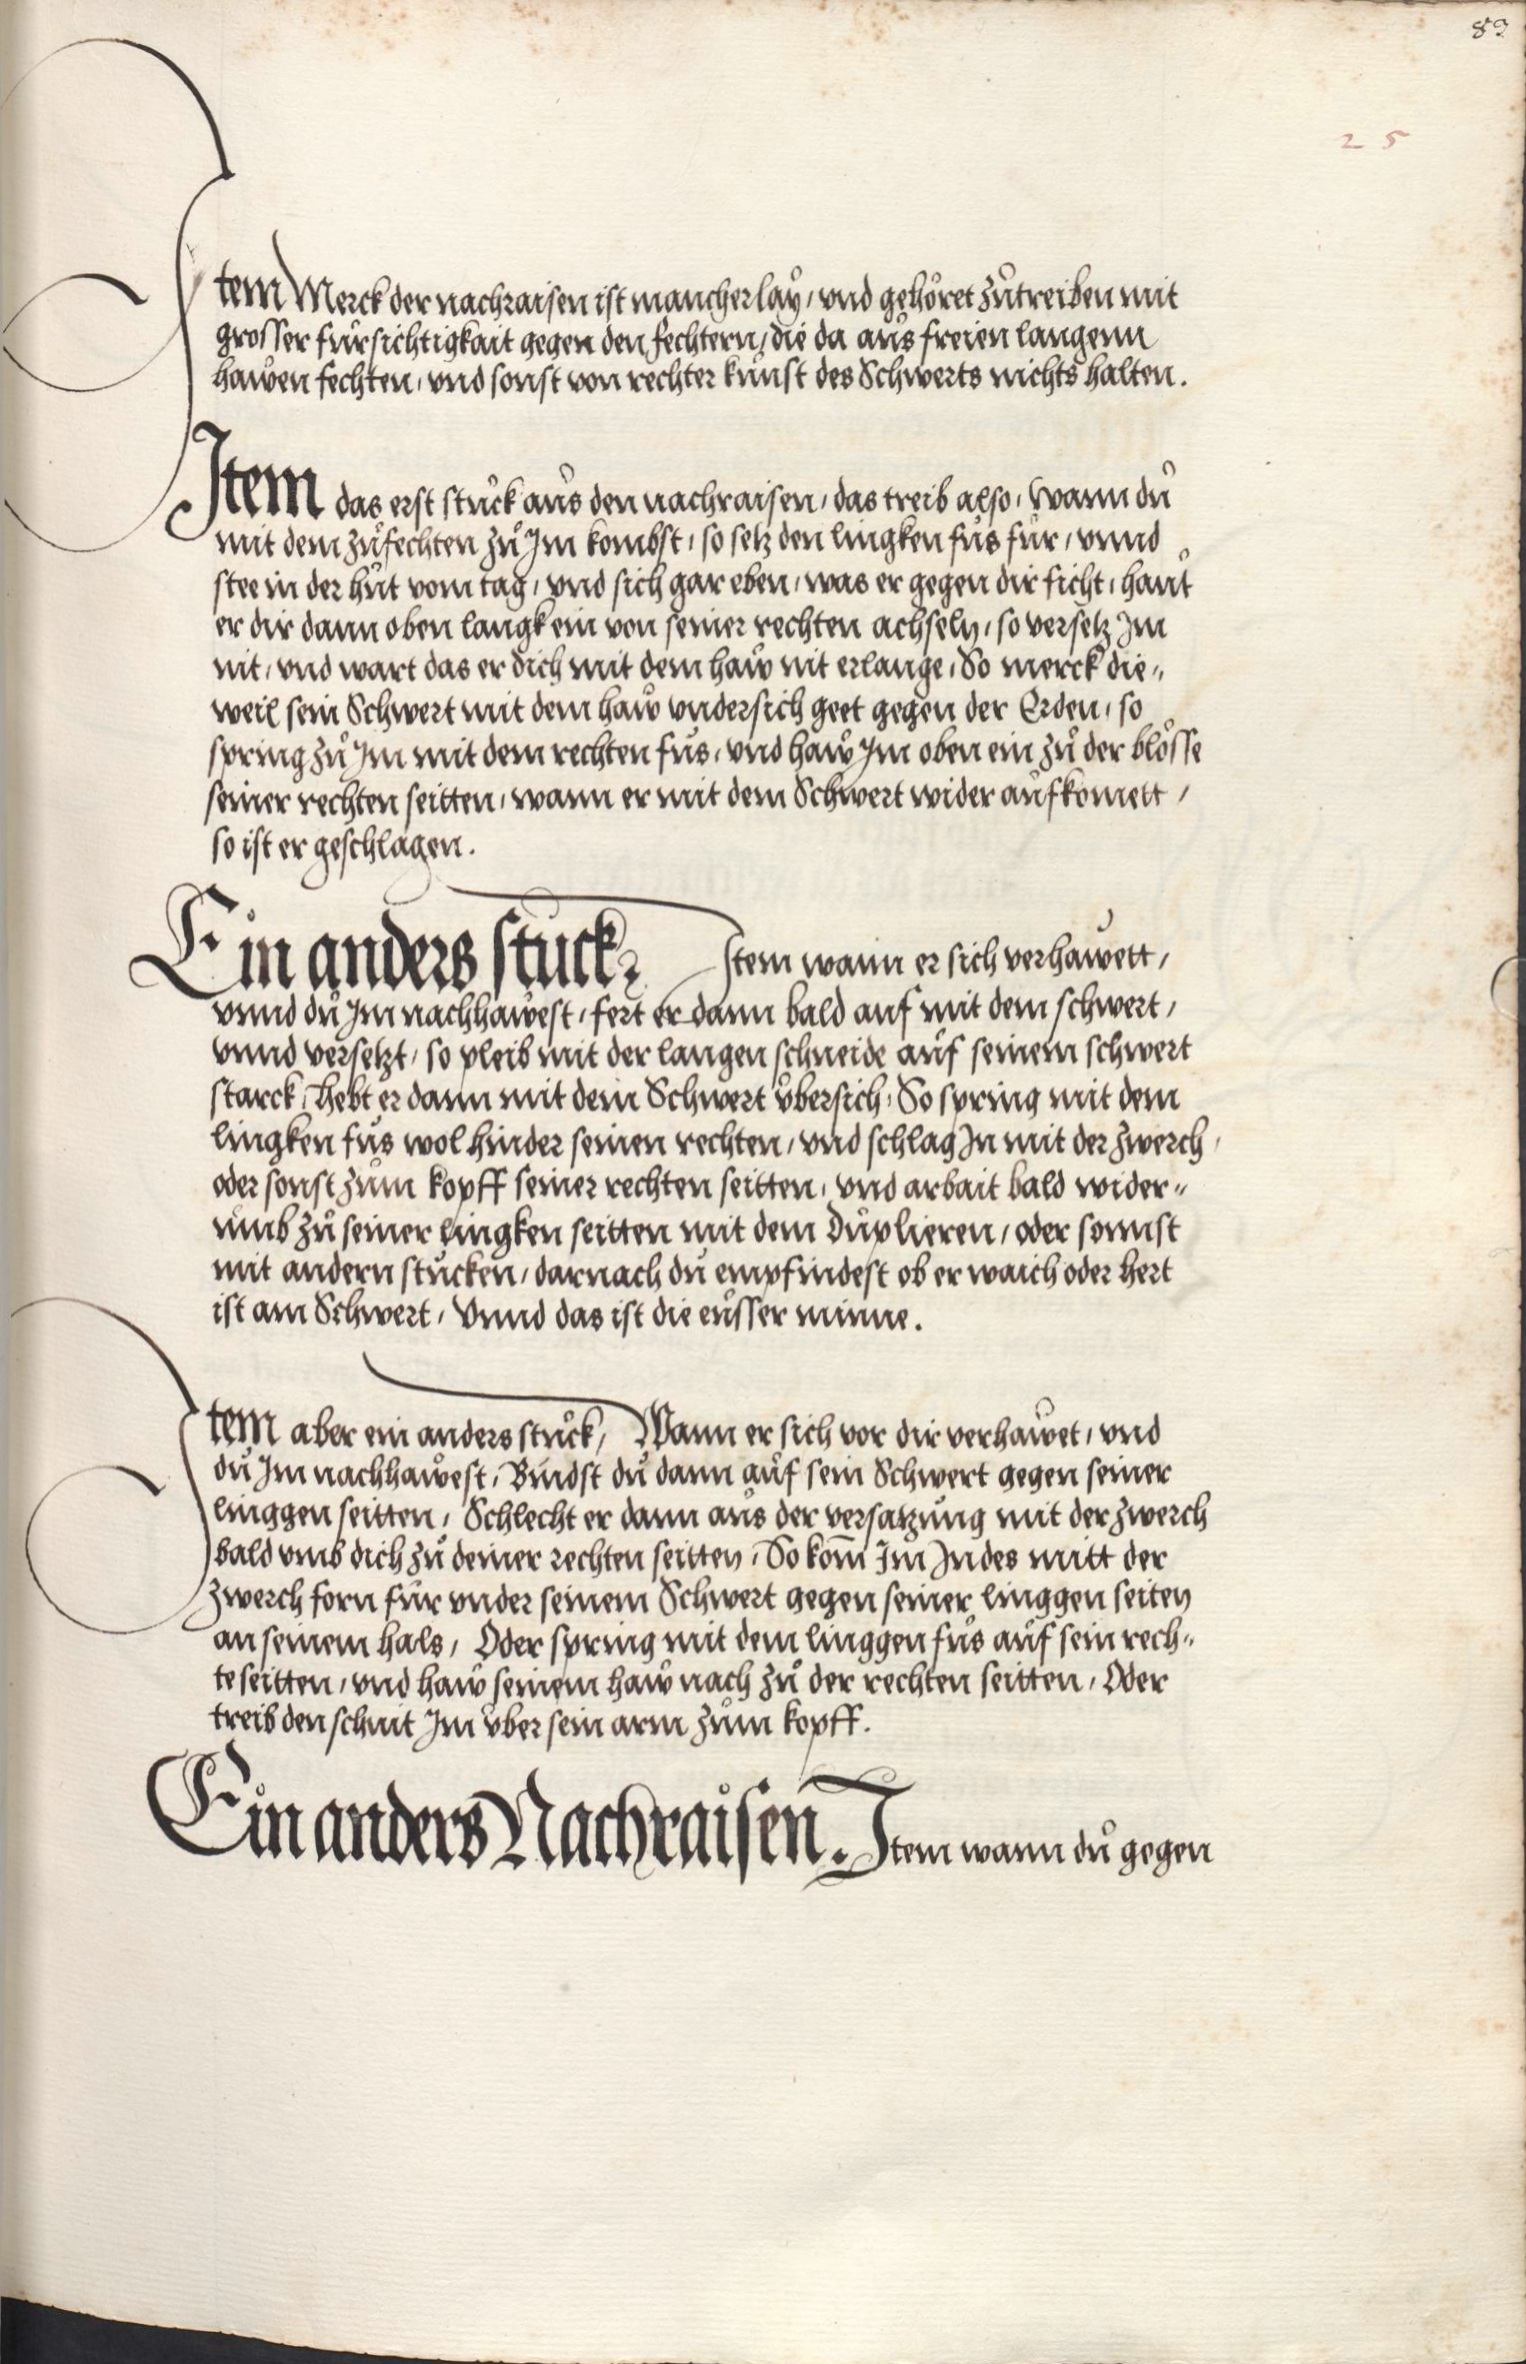 83
2 5
Item Merck der nachraisen ist mancherlaÿ / vnd gehöret zůtreiben mit
grosser fürsichtigkait gegen den fechtern / die da aůs freien langenn
hawen fechten / vnd sonst von rechter kůnst des Schwerts nichts halten .
Item das erst stůck aůs den nachraisen / das treib also / Wann dů
mit dem zůfechten zů Im kombst / so setz den lingken fůs für / vnnd
stee in der hůt vom tag / vnd sich gar eben / was er gegen dir ficht / haůt
er dir dann oben langk ein von seiner rechten achseln / so versetz Im
nit / vnd wart das er dich mit dem haw nit erlange / So merck die„
weil sein Schwert mit dem haw vndersich geet gegen der Erden / so
spring zů Im mit dem rechten fůs / vnd haw Im oben ein zů der blösse
seiner rechten seitten / wann er mit dem Schwert wider aůfkomett /
so ist er geschlagen .
Ein anders stuck Item wann er sich verhawett /
vnnd dů Im nachhawest / fert er dann bald auf mit dem schwert /
vnnd versetzt / so pleib mit der langen schneide aůf seinem schwert
starck / hebt er dann mit dem Schwert übersich / So spring mit dem
lingken fůs wol hinder seinen rechten / vnd schlag In mit der zwerch /
oder sonst zům kopff seiner rechten seitten / vnd arbait bald wider„
ůmb zů seiner lingken seitten mit dem Důplieren / oder sonnst
mit andern stůcken / darnach dů empfindest ob er waich oder hert
ist am Schwert / Vnnd das ist die eůsser minne .
Item aber ein anders stůck / Wann er sich vor dir verhawet / vnd
dů Im nachhawest / Bindst dů dann aůf sein Schwert gegen seiner
linggen seitten / Schlecht er dann aůs der versatzůng mit der zwerch
bald vmb dich zů deiner rechten seitten / So kom̄ Im Indes mitt der
zwerch forn für vnder seinem Schwert gegen seiner linggen seiten
an seinem hals / Oder spring mit dem linggen fůs aůf sein rech„
te seitten / vnd haw seinem haw nach zů der rechten seitten / Oder
treib den schnit Im über sein arm zům kopff .
Ein anders Nachraisen . Item wann dů gegen